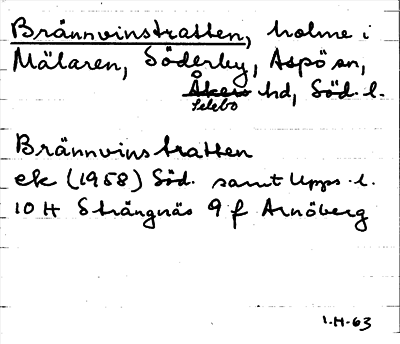 Brännvinstratten, holme i
Mälaren, Söderby, Aspö sn,
Åkers hd, Söd. l.
Selebo
Brännvinstratten
ek (1958) Söd. samt Upps. l.
10 H Strängnäs 9 f Arnöberg
I.H-63